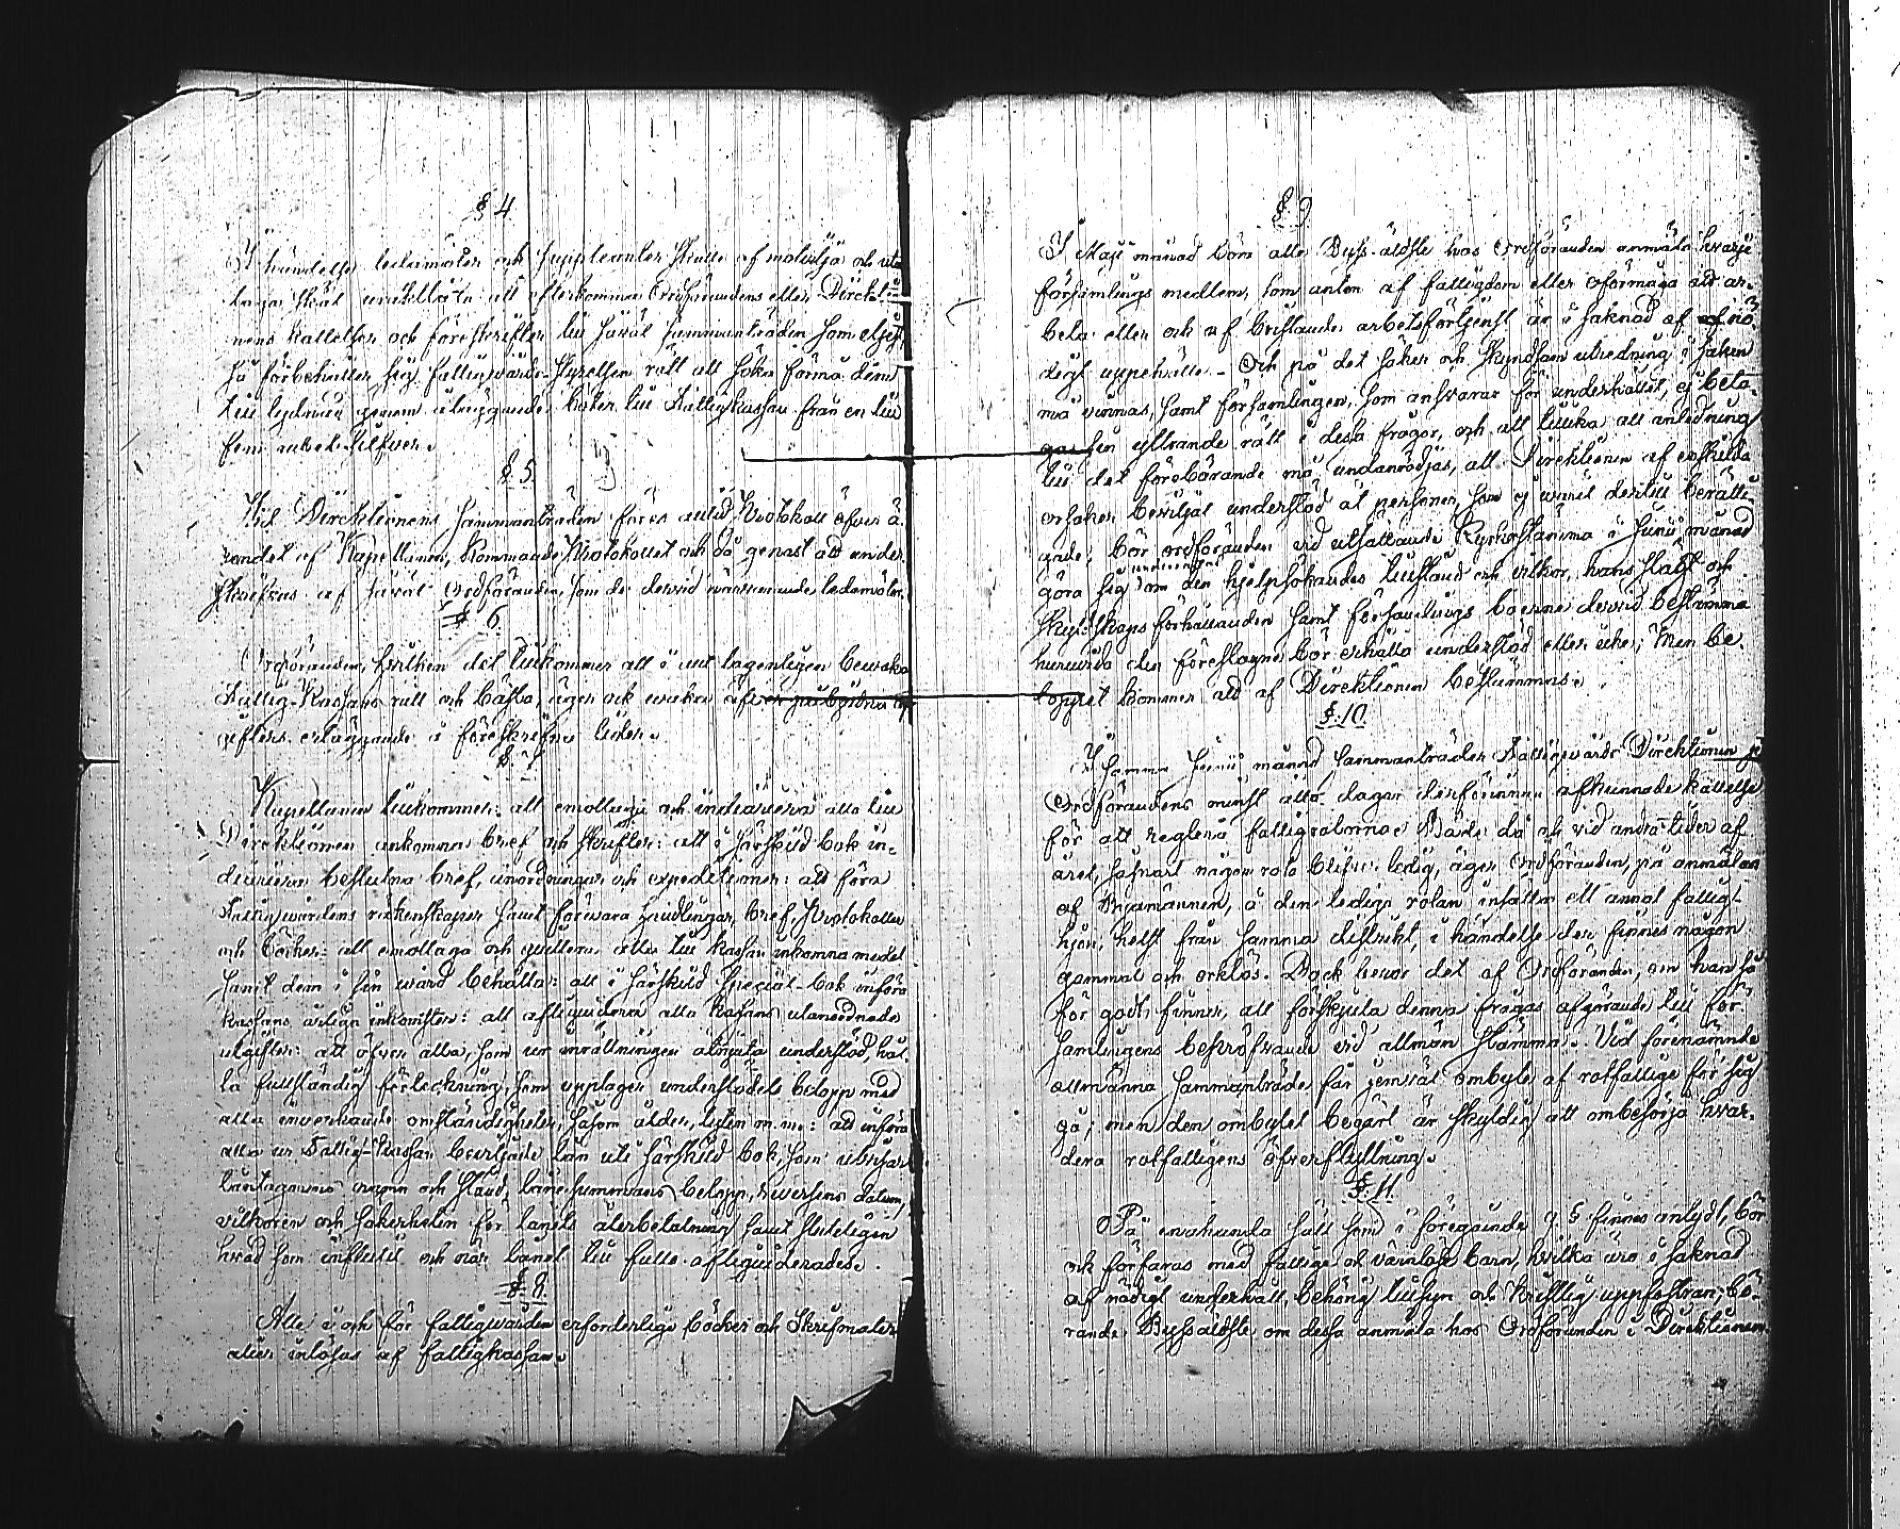 § 4
I händelse ledamöter och suppleanter skulle af motvilja och utan
laga skäl underlåta att efterkomma Ordförandens eller Direktio
nens kallelser och föreskrifter till såväl sammanträden som eljest,
så förbehåller sig Fattigvårds-Styrelsen rätt att söka förmå dem
till lydnad genom åläggande böter till Fattigkassan från en till
fem rubel silfver.
§ 5.
Vid Direktionens sammanträden föres alltid Protokoll öfver ä-
rendet af Kapellanen, kommande Protokollet och då genast att under-
skrifvas af såväl Ordföranden, som de dervid närvarande ledamöter.
§ 6.
Ordföranden, hvilken det tillkommer att i allt lagenligen bevaka
Fattig-Kassans rätt och bästa, äger ock vaka öfver påbördna af-
gifters erläggande i föreskrifne tider.
§ 7
Kapellanen tillkommer: att emottaga och indiariera alla till
Direktionen ankomna bref och skrifter: att i särskild bok in-
diariera beslutna bref, anordningar och expeditioner: att föra
Fattigvårdens räkenskaper samt förvara handlingar, bref, Protokoller
och böcker: att emottaga och quittera alla till kassan inkomna medel
samt dem i sin vård behålla: att i särskild special-bok införa
kassans årliga inkomster: att afliquidera alla kassans utanordnade
utgifter: att öfver alla, som ur inrättningen åtnjuta understöd, hål-
la fullständig förteckning, som upptager understödets belopp med
alla inverkande omständigheter, såsom ålder, lyten m.m.: att införa
alla ur Fattig-Kassan beviljade lån uti särskild bok, som utvisar
låntagarens namn och stånd, lånesummans belopp, reversens datum,
vilkoren och säkerheten för lånets återbetalning samt slutligen
hvad som influtit och när lånet till fullo afliquiderades.
§ 8.
Alla i och för fattigvården erforderliga böcker och Skrifmater-
alier inlösas af fattigkassan.
§ 9
I Maji månad böra alla Bys-äldste hos Ordföranden anmäla hvarje
församlings medlem, som antin af fattigdom eller oförmåga att ar-
beta eller och af bristande arbetsförtjenst är i saknad af nö-
digt uppehälle. Och på det säker och skyndsam utredning i saken
må vinnas, samt församlingen, som ansvarar för underhållet, ej beta-
gas sin yttrande rätt i dessa frågor, och att tillika all anledning
till det förebärande må undanrödjas, att Direktionen af enskilda
orsaker beviljat understöd åt personer, som ej varit dertill berätti-
gade, bör ordföranden vid utsättande Kyrkostämma i Junii månad
göra sig underrättad om den hjelpsökandes tillstånd och vilkor, hans slägt och
skyldskaps förhållanden samt församlings boerne dervid bestämma
huruvida den föreslagne bör erhålla understöd eller icke; Men be-
loppet kommer att af Direktionen bestämmas.
§. 10.
I samma Junii månad, sammanträder Fattigvårds Direktionen på
Ordförandens minst åtta dagar derförinnan afkunnade kallelse
för att reglera fattigrotarna. Både då och vid andra tider af
året, såsnart någon rota blifver ledig, äger Ordföranden, på anmälan
af Byamännen, å den lediga rotan insätta ett annat fattig-
hjon, helst från samma distrikt, i händelse der finnes någon
gammal och orklös. Dock beror det af Ordföranden, om han så
för godt finner, att förskjuta denna frågas afgörande till för-
samlingens bepröfvande vid allmän stämma. Vid förenämnde
allmänna sammanträde får jemväl ombyte af rotfattige för sig
gå; men den ombytet begärt är skyldig att ombesörja hvar-
dera rotfattigens öfverflyttning.
§. 11.
På enahanda sätt som i föregående 9 § finnes antydt, bör
ock förfaras med fattige och värnlöse barn, hvilka äro i saknad
af nödigt underhåll, behörig tillsyn och kristlig uppfostran; bö-
rande Bysäldste om dessa anmäla hos Ordföranden i Direktionen.